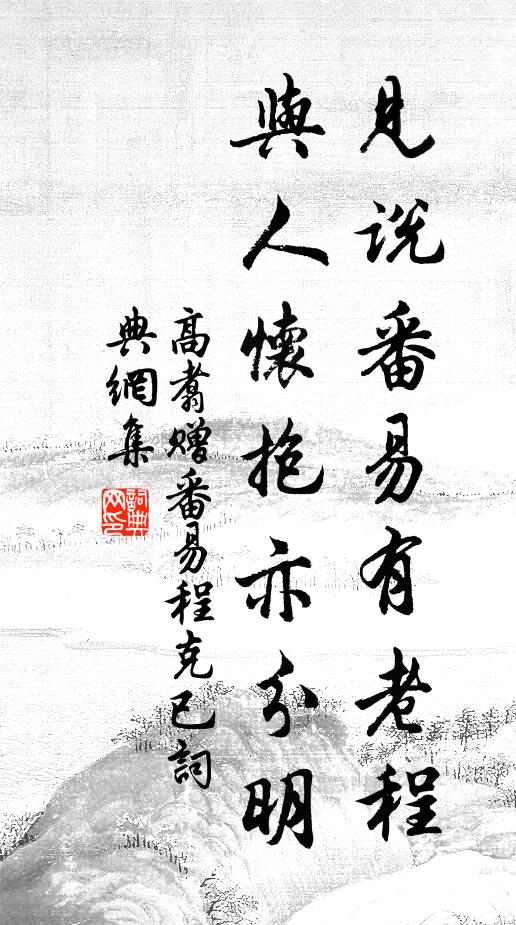 見說番易有老程
與人懷抱亦分明
高翥贈番易程克已詞
典網集
詞典網印